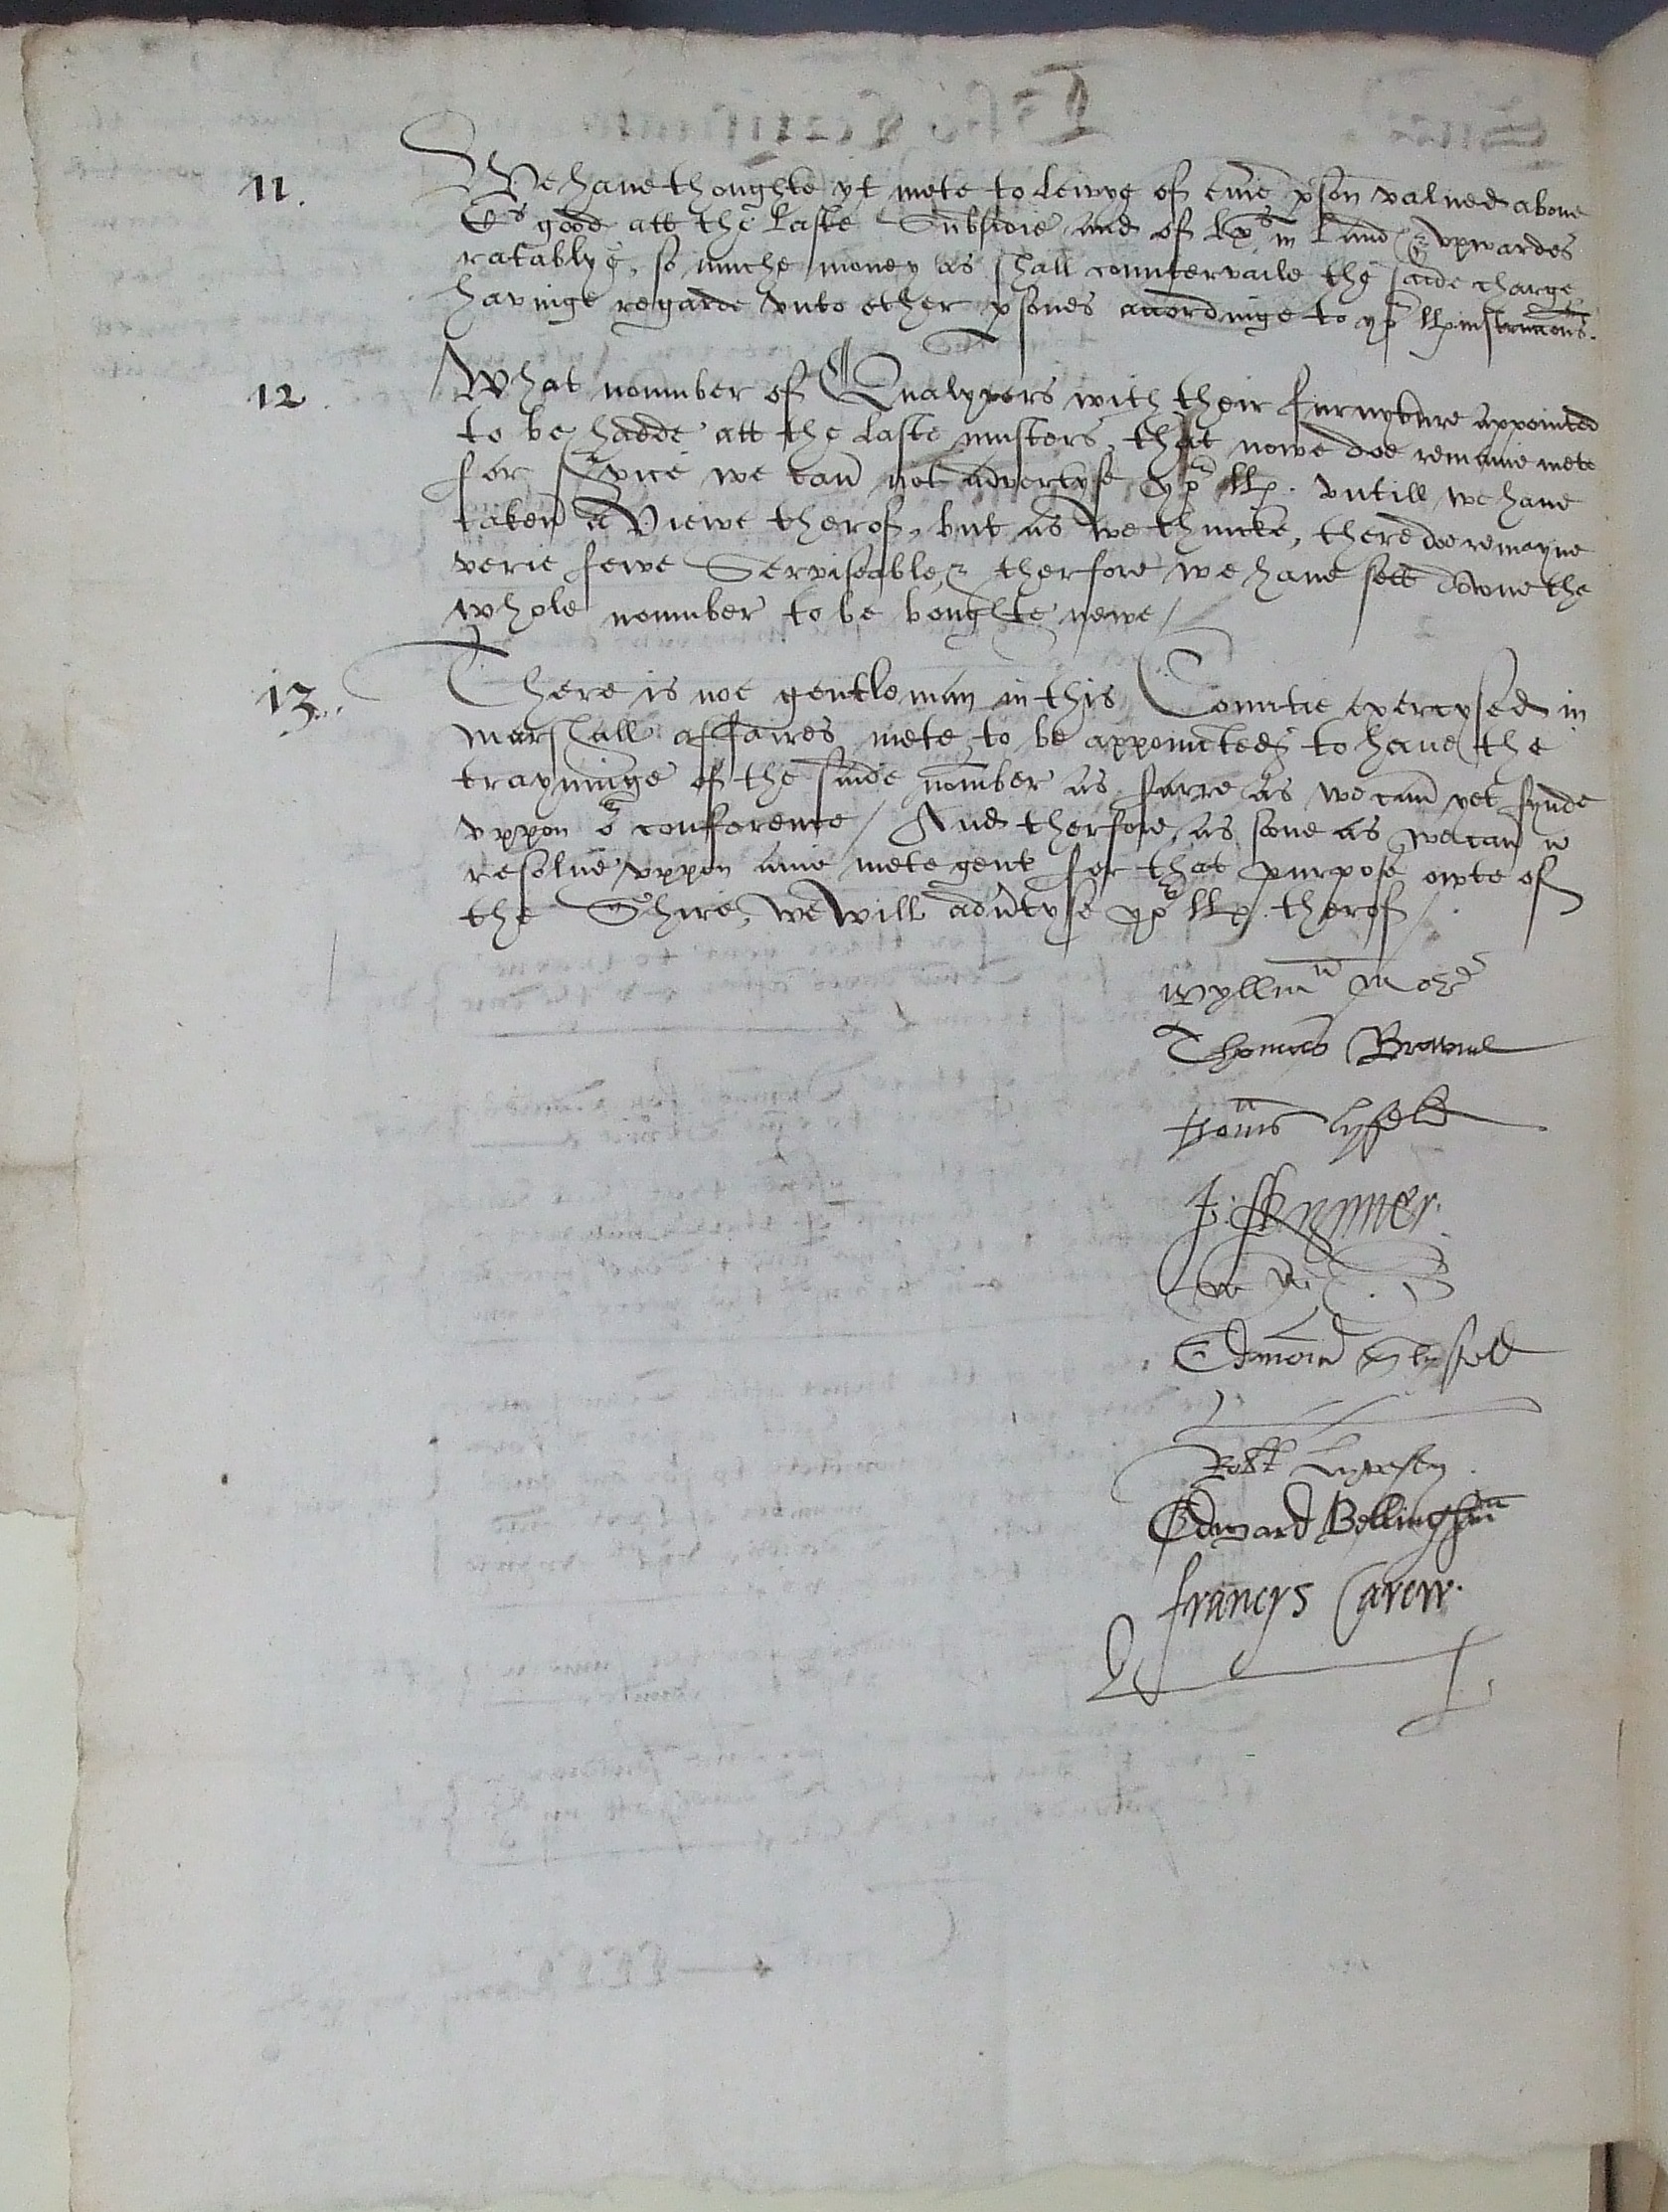 11. We have thoughte yt mete to levye of euie pson valued above
Cs good att the laste Subsidie and of lxs in Land & vpwardes
ratablye, so muche money as shall countervaile the saide charge
havinge regarde vnto other psones accordinge to yor llp instruccons.
12. What nomber of Qualyvers with their furnyture appointed
to be hadde att the laste musters, that nowe doe remaine mete
for svice we can not advertyse yor llp. vntill we have
taken a Viewe therof, but as we thincke, there doe remayne
verie fewe Serviseable & therfore we have sett downe the
whole nomber to be boughte newe /
13. There is noe gentleman in this Countie exercysed in
marshall affaires mete to be appointed to have the
trayninge of the saide nomber as farre as we can yet fynde
vppon or conference / And therfore as sone as we can
resolue vppon anie mete gent for that purpose owte of
the Shire, we will adutyse yor llp. therof /
Wyllm More
Thomas Browne
Thoms Lyfeld
J. Skynner.
Edmond Slyfeld
Robt Lyvesey
Edward Bellingham
francys Carew.